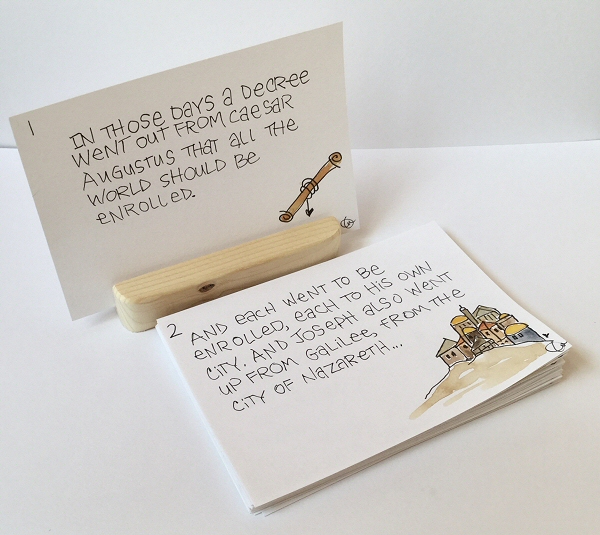 1
IN THOSE DAYS A DECREE
WENT OUT FROM CAESAR
AUGUSTUS THAT ALL THE
WORLD SHOULD BE
ENROLLED.
2
AND EACH WENT TO BE
ENROLLED, EACH TO HIS OWN
CITY. AND JOSEPH ALSO WENT
UP FROM GALILEE, FROM THE
CITY OF NAZARETH...